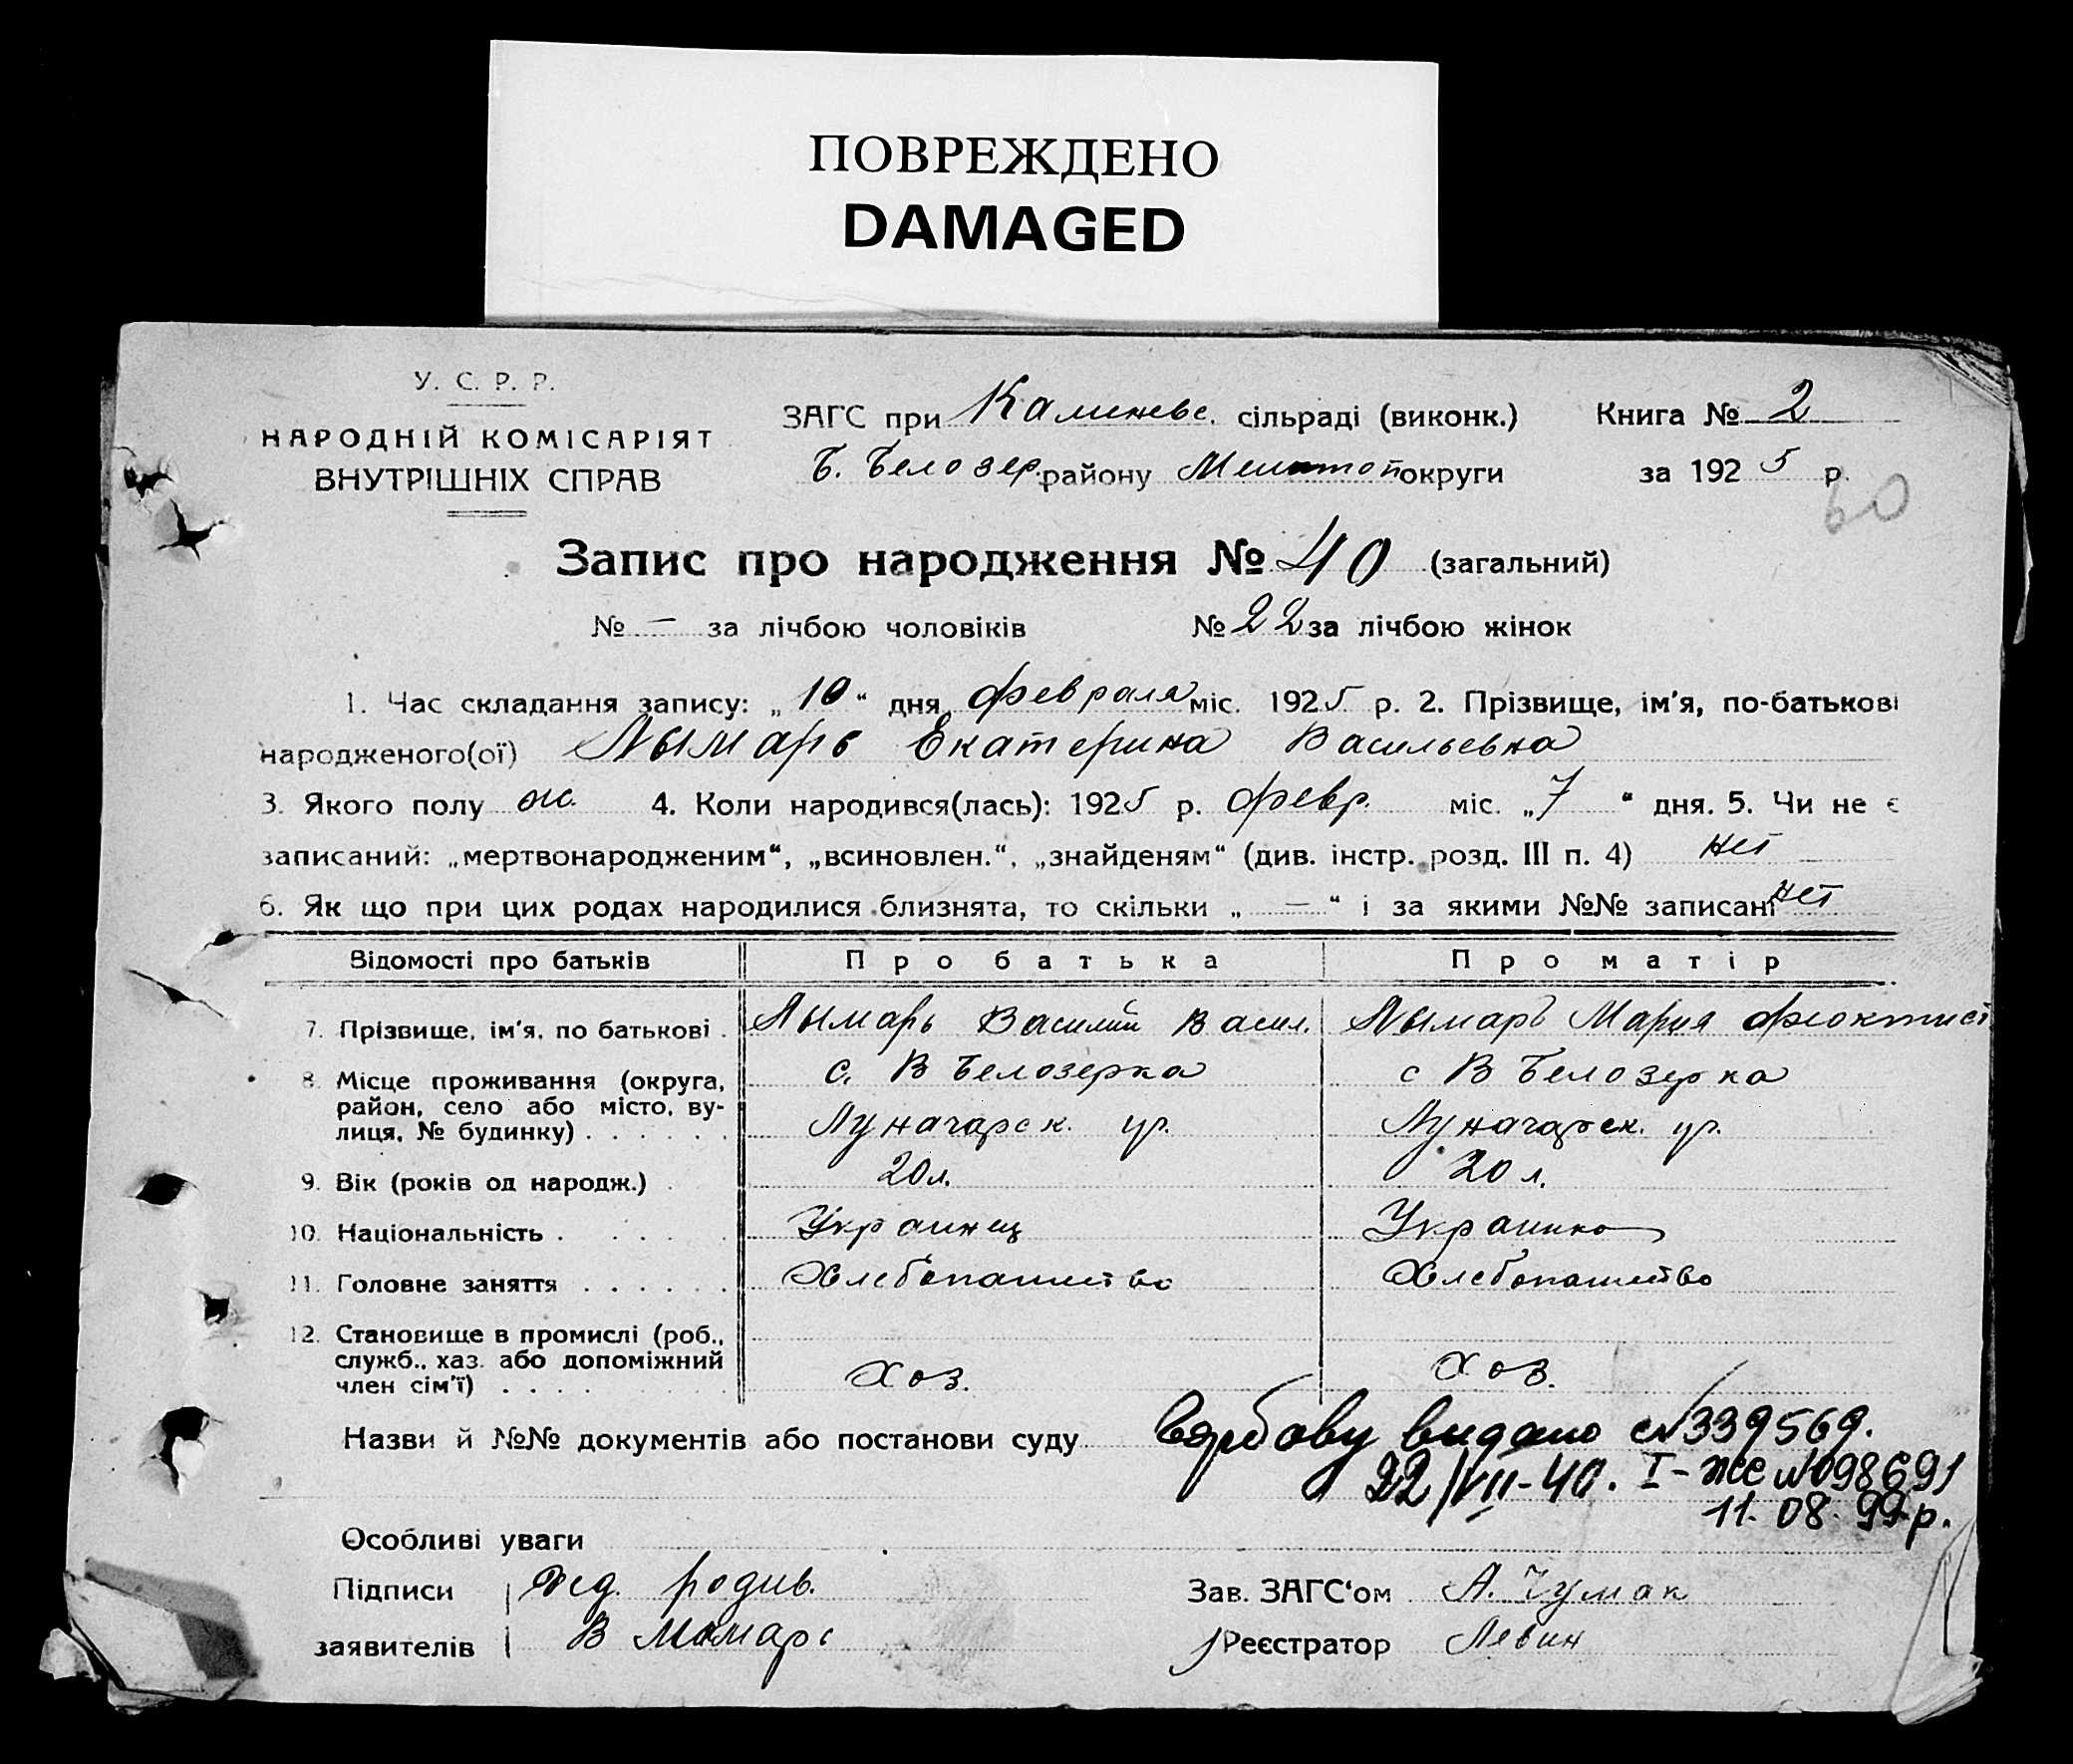 ПОВРЕЖДЕНО
DAMAGED
У. С. Р. Р.
НАРОДНІЙ КОМІСАРІЯТ
ВНУТРІШНІХ СПРАВ
ЗАГС при Каменевс. сільраді (виконк.) Книга № 2
Б. Белозер. району Мелитоп округи за 1925 р.
60
Запис про народження № 40 (загальний)
№ — за лічбою чоловіків № 22 за лічбою жінок
1. Час складання запису: „10“ дня февраля міс. 1925 р. 2. Прізвище, ім'я, по-батькові
народженого(ої) Лымарь Екатерина Васильевна
3. Якого полу ж. 4. Коли народився(лась): 1925 р. февр. міс. „7“ дня. 5. Чи не є
записаний: „мертвонародженим“, „всиновлен.“, „знайденям“ (див. інстр. розд. III п. 4) нет
6. Як що при цих родах народилися близнята, то скільки „—“ і за якими №№ записані нет
Відомості про батьків Про батька Про матір
7. Прізвище, ім'я, по батькові . Лымарь Василий Васил. Лымарь Мария Феоктист
8. Місце проживання (округа, с. В Белозерка с В Белозерка
район, село або місто, ву-
лиця, № будинку) . . . . . . Луначарск. ур. Луначарск. ур.
9. Вік (років од народж.) . 20 л. 20 л.
10. Національність . . . . . Украинец Украинка
11. Головне заняття . . . . . . Хлебопашество Хлебопашество
12. Становище в промислі (роб.,
служб., хаз. або допоміжний
член сім'ї) . . . . Хоз. Хоз.
Назви й №№ документів або постанови суду видано №339569.
22/VII-40. I-ЖС №098691
11. 08. 99р.
Особливі уваги
Підписи родив. Зав. ЗАГС'ом А. Чумак
заявителів В Лымарь Реєстратор Левин